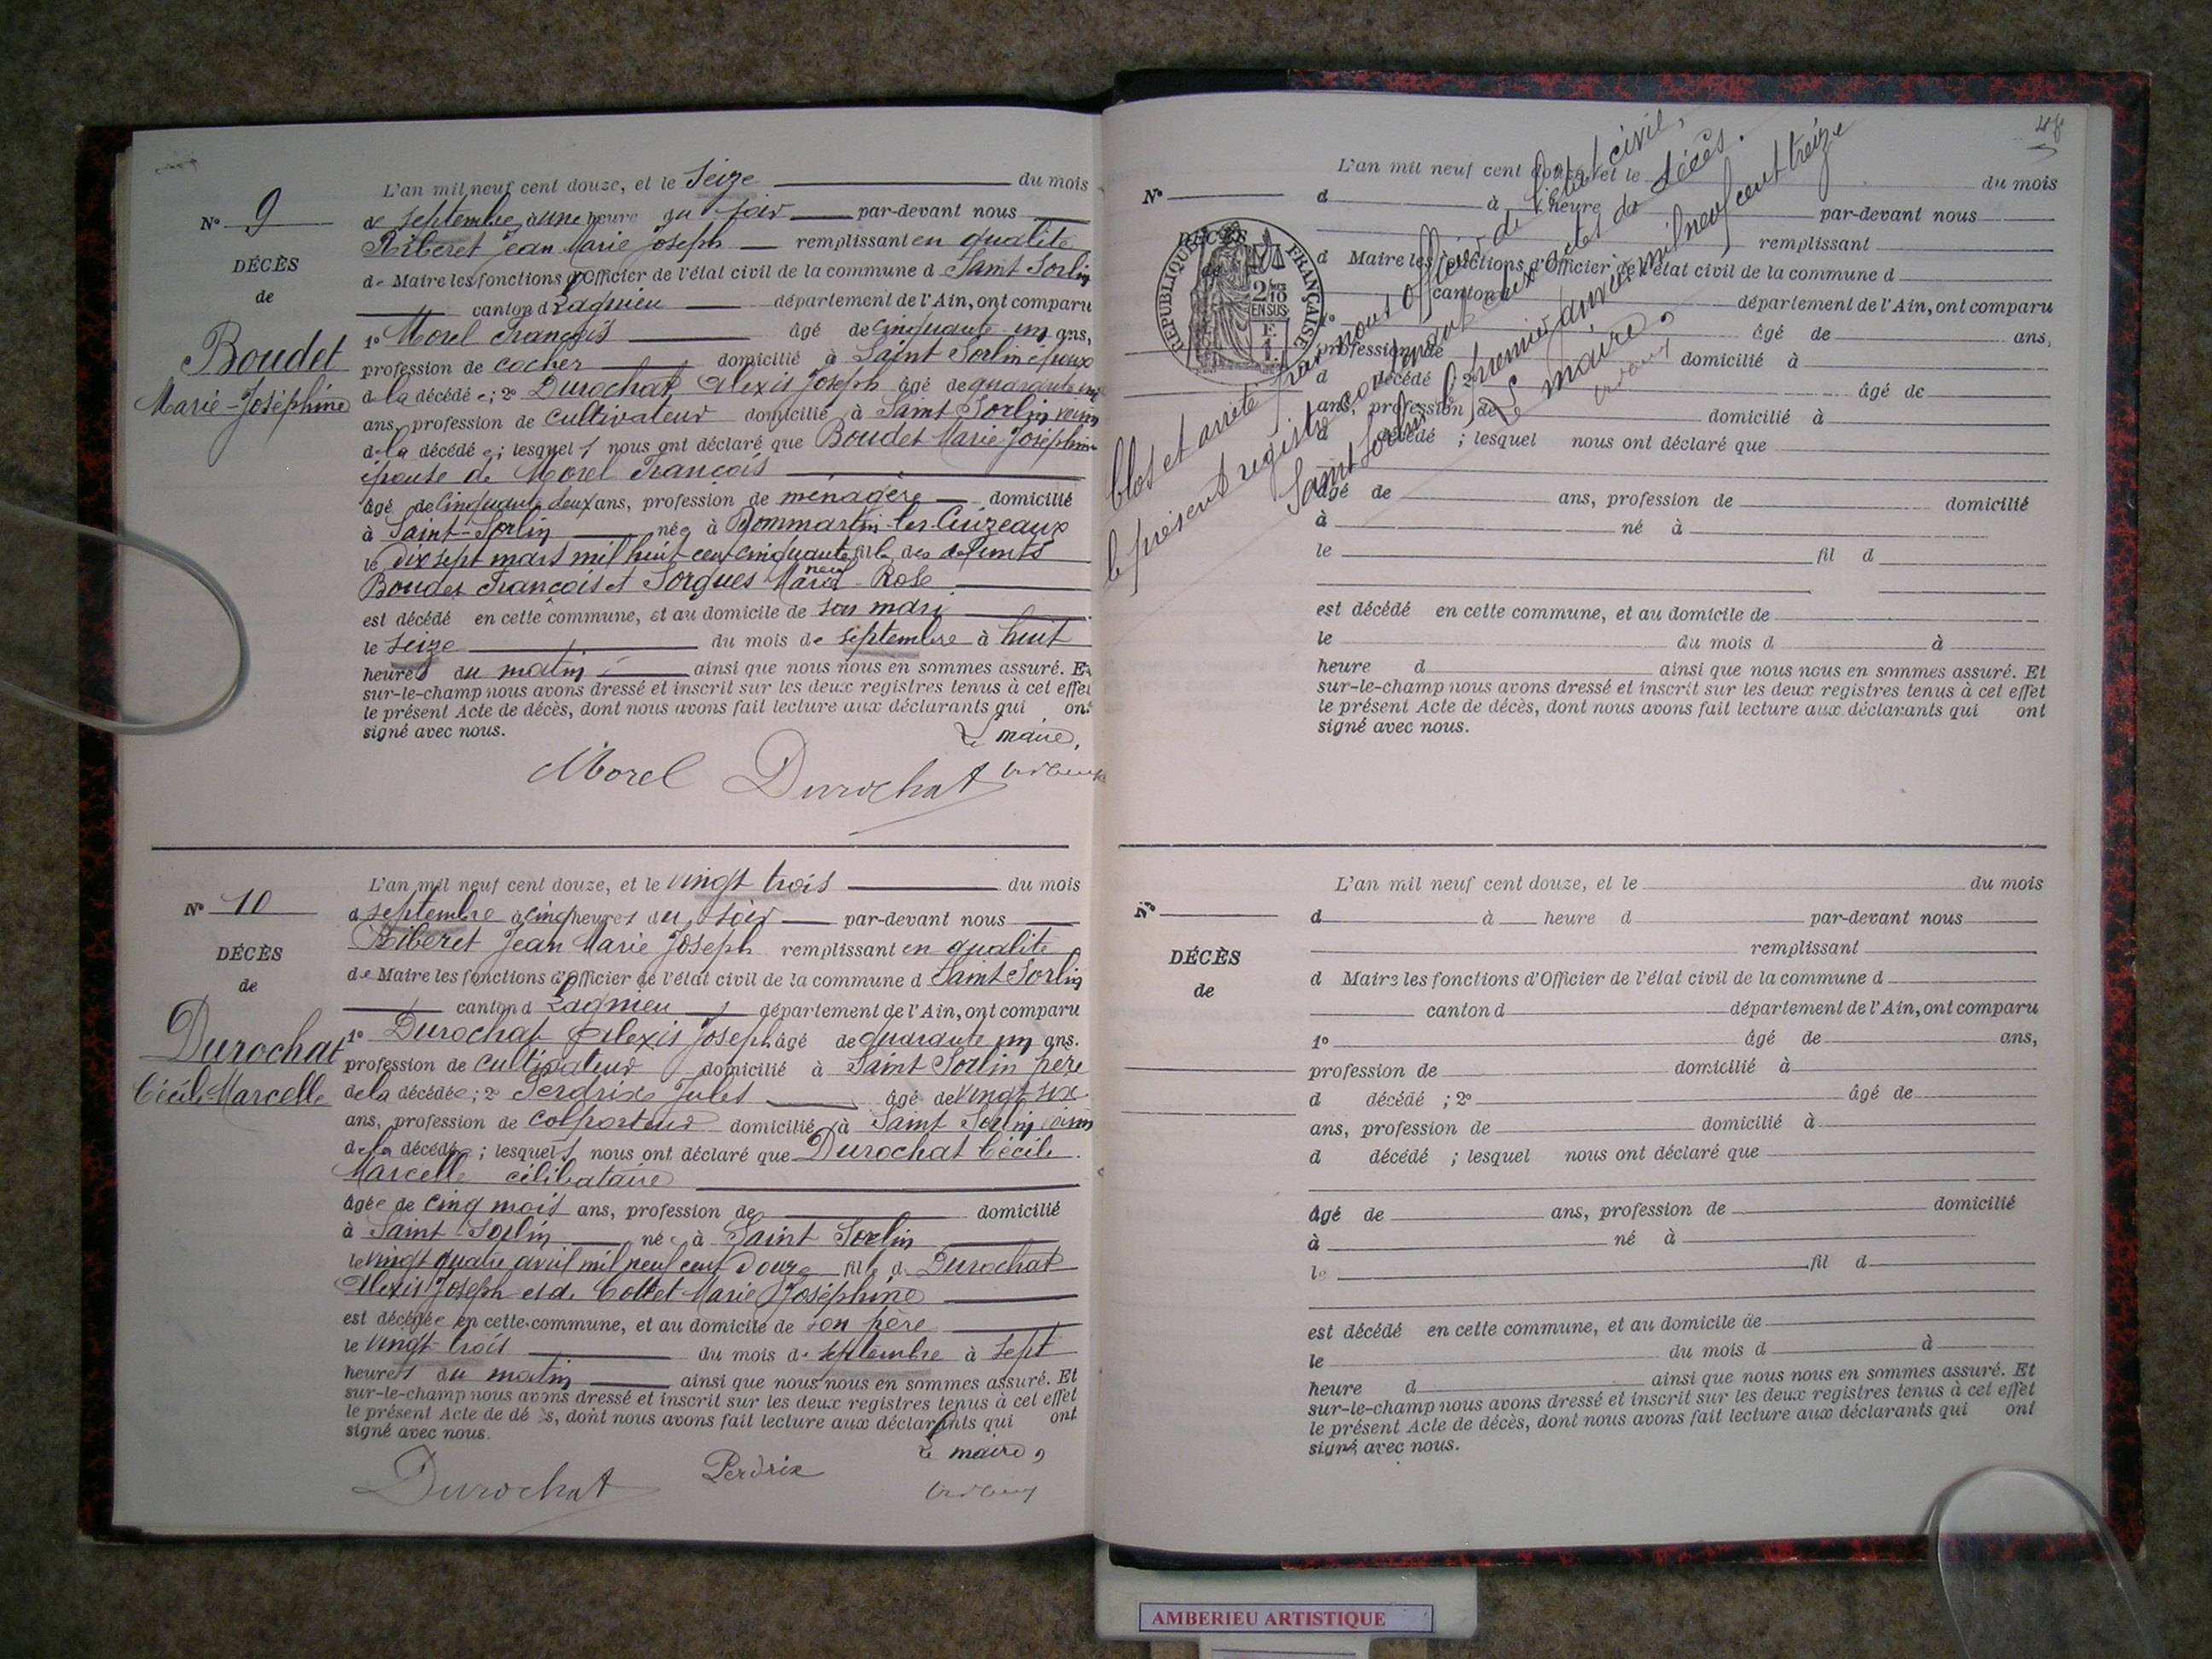 N° 9
DÉCÈS
de
Boudet
Marie-Joséphine
L'an mil neuf cent douze, et le Seize du mois
de septembre à une heure du soir par-devant nous
Riberet Jean Marie Joseph remplissant en qualité
de Maire les fonctions d'Officier de l'état civil de la commune d Saint Sorlin
canton d Lagnieu département de l'Ain, ont comparu
1° Morel François âgé de cinquante un ans,
profession de cocher domicilié à Saint Sorlin époux
de la décédée ; 2° Durochat Alexis Joseph âgé de quarante un
ans, profession de cultivateur domicilié à Saint Sorlin voisin
de la décédée ; lesquels nous ont déclaré que Boudet Marie Joséphine
épouse de Morel François
âgé de cinquante deux ans, profession de ménagère domicilié
à Saint-Sorlin née à Dommartin-les-Cuizeaux
le dix sept mars mil huit cent cinquante fille des défunts
neuf
Boudet François et Sorgues Marie Rose
est décédé en cette commune, et au domicile de son mari
le seize du mois de septembre à huit
heures du matin ainsi que nous nous en sommes assuré. Et
sur-le-champ nous avons dressé et inscrit sur les deux registres tenus à cet effet
le présent Acte de décès, dont nous avons fait lecture aux déclarants qui ont
signé avec nous.
Le maire,
Morel Durochat
N° 10
DÉCÈS
de
Durochat
Cécile Marcelle
L'an mil neuf cent douze, et le vingt trois du mois
d septembre à cinq heures du soir par-devant nous
Riberet Jean Marie Joseph remplissant en qualité
de Maire les fonctions d'Officier de l'état civil de la commune d Saint Sorlin
canton d Lagnieu département de l'Ain, ont comparu
1° Durochat Alexis Joseph âgé de quarante un ans.
profession de cultivateur domicilié à Saint Sorlin père
de la décédée ; 2° Perdrix Jules âgé de vingt six
ans, profession de colporteur domicilié à Saint Sorlin voisin
de la décédée ; lesquels nous ont déclaré que Durochat Cécile
Marcelle célibataire
âgée de cinq mois ans, profession de domicilié
à Saint Sorlin née à Saint Sorlin
le vingt quatre avril mil neuf cent douze fille d Durochat
Alexis Joseph et de Collet Marie Joséphine
est décédée en cette commune, et au domicile de son père
le vingt-trois du mois de septembre à sept
heures du matin ainsi que nous nous en sommes assuré. Et
sur-le-champ nous avons dressé et inscrit sur les deux registres tenus à cet effet
le présent Acte de dé s, dont nous avons fait lecture aux déclarants qui ont
signé avec nous.
Le maire,
Durochat Perdrix
N°
DÉCÈS
RÉPUBLIQUE FRANÇAISE
2/10 EN SUS
L'an mil neuf cent douze, et le du mois
d à heure par-devant nous
remplissant
d Maire les fonctions d'Officier de l'état civil de la commune d
canton d département de l'Ain, ont comparu
1° âgé de ans,
profession de domicilié à
d décédé ; 2° âgé de
ans, profession de domicilié à
d décédé ; lesquel nous ont déclaré que
âgé de ans, profession de domicilié
à né à
le fil d
est décédé en cette commune, et au domicile de
le du mois d à
heure d ainsi que nous nous en sommes assuré. Et
sur-le-champ nous avons dressé et inscrit sur les deux registres tenus à cet effet
le présent Acte de décès, dont nous avons fait lecture aux déclarants qui ont
signé avec nous.
Clos et arrêté par nous officier de l'état civil,
le présent registre contenant dix actes de décès.
Saint Sorlin le premier janvier mil neuf cent treize
Le maire,
N°
DÉCÈS
de
L'an mil neuf cent douze, et le du mois
d à heure d par-devant nous
remplissant
d Maire les fonctions d'Officier de l'état civil de la commune d
canton d département de l'Ain, ont comparu
1° âgé de ans,
profession de domicilié à
d décédé ; 2° âgé de
ans, profession de domicilié à
d décédé ; lesquel nous ont déclaré que
âgé de ans, profession de domicilié
à né à
le fil d
est décédé en cette commune, et au domicile de
le du mois d à
heure d ainsi que nous nous en sommes assuré. Et
sur-le-champ nous avons dressé et inscrit sur les deux registres tenus à cet effet
le présent Acte de décès, dont nous avons fait lecture aux déclarants qui ont
signé avec nous.
AMBERIEU ARTISTIQUE